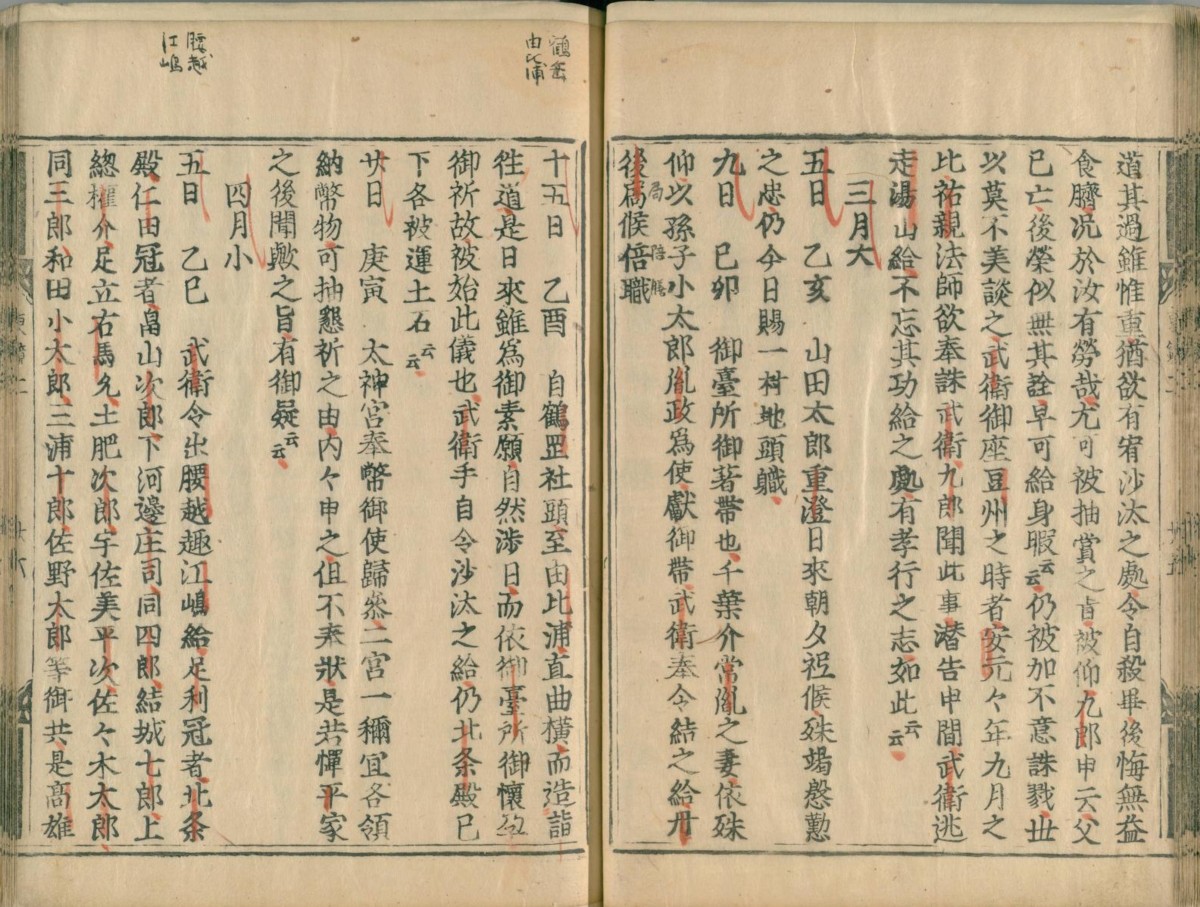 道其過雖惟重猶欲有宥沙汰之處令自殺畢後悔無益
食臍况於汝有勞哉尤可被抽賞之旨被仰九郎申云父
已亡後榮似無其詮早可給身暇云云仍被加不意誅戮丗
以莫不美談之武衛御座豆州之時者安元々年九月之
比祐親法師欲奉誅武衛九郎聞此事潜告申間武衛逃
走湯山給不忘其功給之處有孝行之志如此云云
三月大
五日　乙亥　山田太郎重澄日來朝夕祗候殊竭慇懃
之忠仍今日賜一村地頭職
九日　己卯　御臺所御著帶也千葉介常胤之妻依殊
仰以孫子小太郎胤政爲使獻御帶武衛奉令結之給丹
後局候陪膳
後爲候倍職
鶴岳
由比浦
十五日　乙酉　自鶴罡社頭至由比浦直曲橫而造詣
徃道是日來雖爲御素願自然渉日而依御臺所御懷孕
御祈故被始此儀也武衛手自令沙汰之給仍北条殿已
下各被運土石云云
廿日　庚寅　太神宮奉幣御使歸參二宮一禰宜各領
納幣物可抽懇祈之由内々申之但不奉狀是若憚平家
之後聞歟之旨有御疑云云
四月小
腰越
江嶋
五日　乙巳　武衛令出腰越趣江嶋給足利冠者北条
殿仁田冠者畠山次郎下河邊庄司同四郎結城七郎上
總權介足立右馬允土肥次郎宇佐美平次佐々木太郎
同三郎和田小太郎三浦十郎佐野太郎等御共是高雄